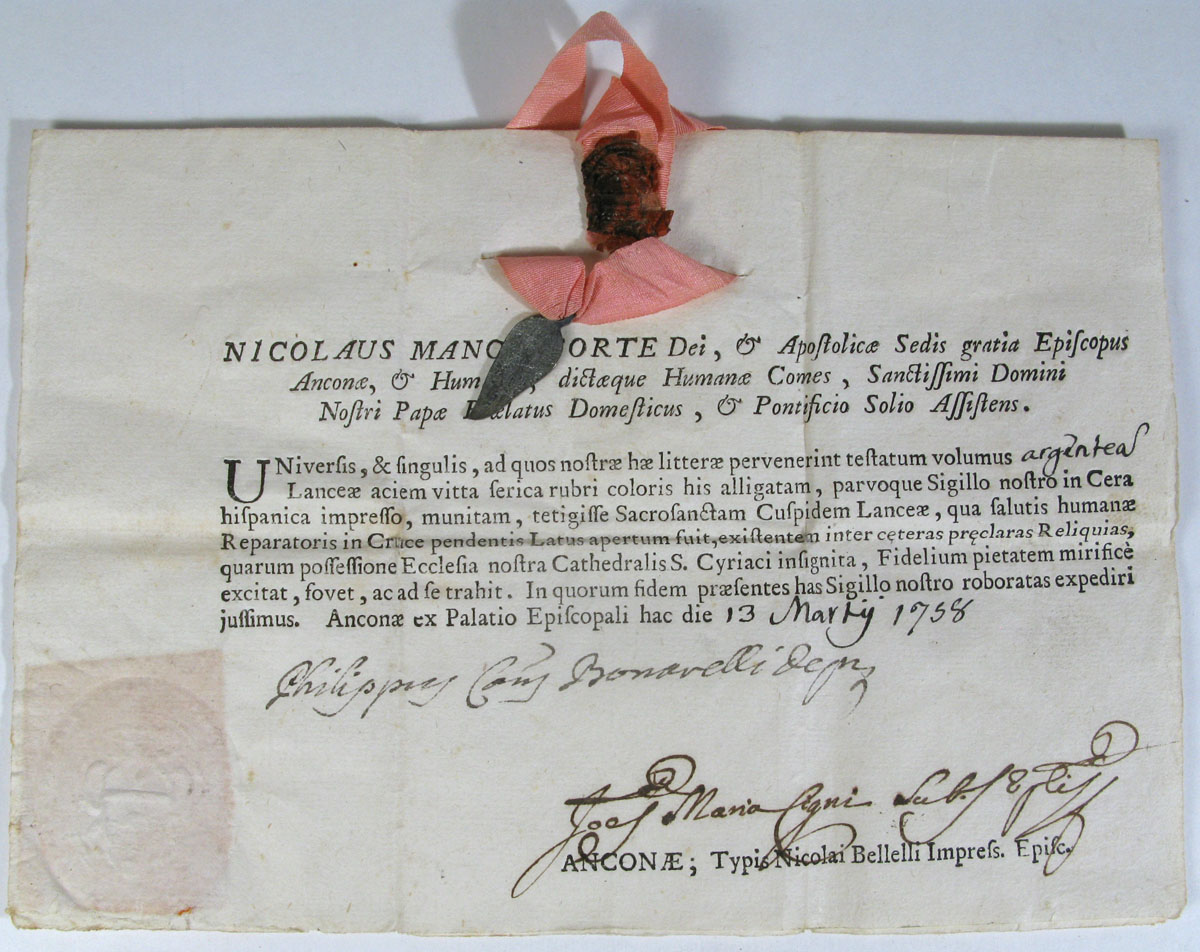 NICOLAUS MANC FORTE Dei, & Apoſtolicæ Sedis gratia Epiſcopus
Anconæ, & Hum , dictæque Humanæ Comes, Sanctiſſimi Domini
Noſtri Papæ Prælatus Domeſticus, & Pontificio Solio Aſſiſtens.
UNiverſis, & ſingulis, ad quos noſtræ hæ litteræ pervenerint teſtatum volumus argenteā
Lanceæ aciem vitta ſerica rubri coloris his alligatam, parvoque Sigillo noſtro in Cera
hiſpanica impreſſo, munitam, tetigiſſe Sacroſanctam Cuſpidem Lanceæ, qua ſalutis humanæ
Reparatoris in Cruce pendentis Latus apertum fuit, exiſtentem inter cęteras pręclaras Reliquias,
quarum poſſeſſione Eccleſia noſtra Cathedralis S. Cyriaci inſignita, Fidelium pietatem mirificè
excitat, fovet, ac ad ſe trahit. In quorum fidem præſentes has Sigillo noſtro roboratas expediri
juſſimus. Anconæ ex Palatio Epiſcopali hac die 13 Martij 1758
Philippus Bonarelli
Maria
ANCONÆ; Typis Nicolai Bellelli Impreſſ. Epiſc.